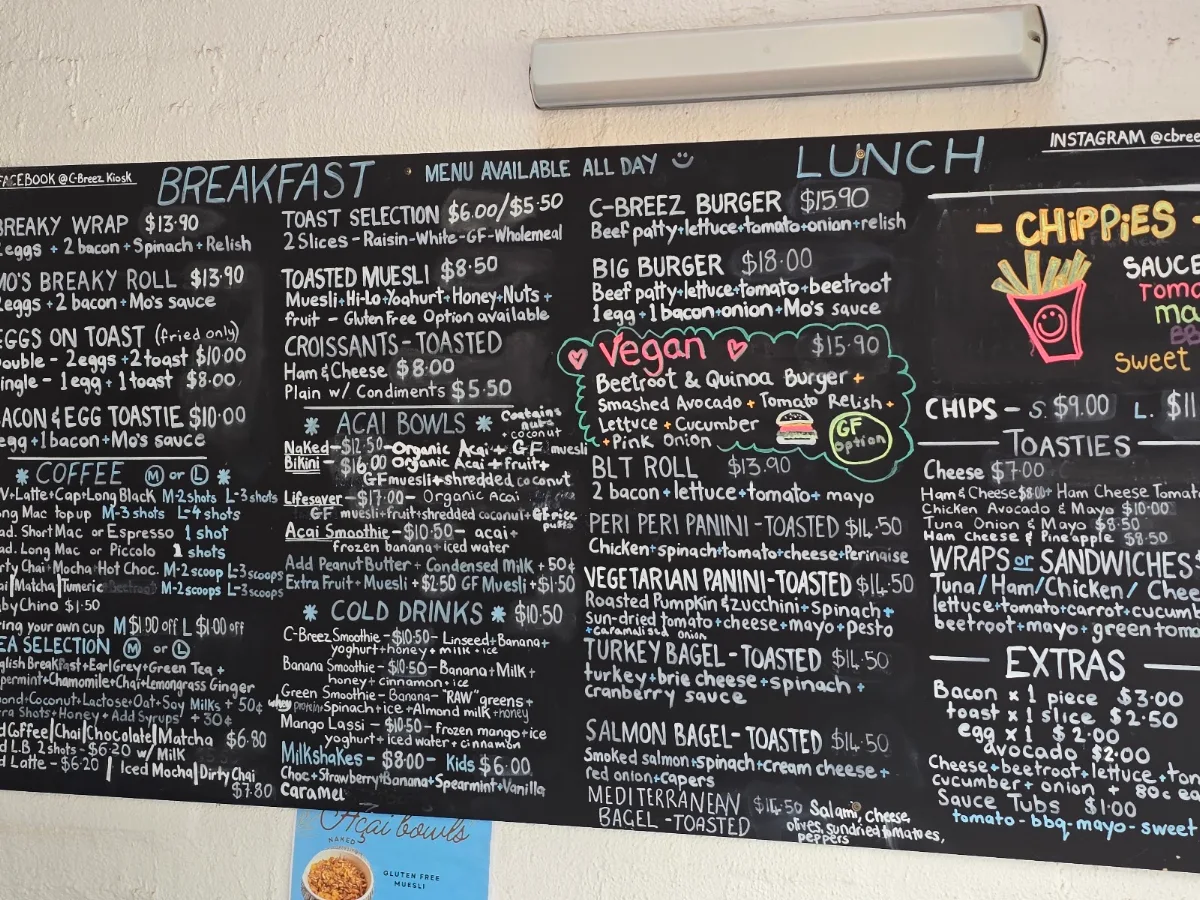 FACEBOOK @C-Breez Kiosk
BREAKFAST
MENU AVAILABLE ALL DAY
LUNCH
INSTAGRAM @cbree
BREAKY WRAP $13.90
2 eggs + 2 bacon + Spinach + Relish
MO'S BREAKY ROLL $13.90
2 eggs + 2 bacon + Mo's sauce
EGGS ON TOAST (fried only)
Double - 2 eggs + 2 toast $10.00
ingle - 1 egg + 1 toast $8.00
BACON & EGG TOASTIE $10.00
egg + 1 bacon + Mo's sauce
COFFEE M or L
V+Latte+Cap+Long Black M-2 shots L-3 shots
ong Mac top up M-3 shots L-4 shots
ad. Short Mac or Espresso 1 shot
ad. Long Mac or Piccolo 1 shots
rty Chai+Mocha+Hot Choc. M-2 scoop L-3 scoops
ai|Matcha|Tumeric M-2 scoops L-3 scoops
byChino $1.50
ring your own cup M $1.00 off L $1.00 off
TEA SELECTION M or L
glish Breakfast+Earl Grey+Green Tea +
permint+Chamomile+Chai+Lemongrass Ginger
mond+Coconut+Lactose+Oat+Soy Milks + 50¢
tra Shots+Honey + Add Syrups + 30¢
d Coffee|Chai|Chocolate|Matcha $6.80
d L.B. 2 shots - $6.20 w/ Milk
d Latte - $6.20 | Iced Mocha|Dirty Chai
$7.80
TOAST SELECTION $6.00/$5.50
2 Slices - Raisin-White-GF-Wholemeal
TOASTED MUESLI $8.50
Muesli+Hi-Lo Yoghurt+Honey+Nuts +
fruit - Gluten Free Option available
CROISSANTS - TOASTED
Ham & Cheese $8.00
Plain w/ Condiments $5.50
ACAI BOWLS
Contains
nuts
+ coconut
Naked - $12.50 - Organic Acai + GF muesli
Bikini - $16.00 Organic Acai + fruit +
GF muesli + shredded coconut
Lifesaver - $17.00 - Organic Acai
GF muesli+fruit+shredded coconut+GF rice
puffs
Acai Smoothie - $10.50 - acai +
frozen banana + iced water
Add Peanut Butter + Condensed Milk + 50¢
Extra Fruit + Muesli + $2.50 GF Muesli + $1.50
COLD DRINKS $10.50
C-Breez Smoothie - $10.50 - Linseed+Banana+
yoghurt+honey + milk + ice
Banana Smoothie - $10.50 - Banana+Milk+
honey + cinnamon + ice
Green Smoothie - Banana - "RAW" greens +
whey protein+Spinach+ice+Almond milk+honey
Mango Lassi - $10.50 - frozen mango+ice
yoghurt + iced water + cinnamon
Milkshakes - $8.00 - Kids $6.00
Choc+Strawberry+Banana+Spearmint+Vanilla
Caramel
C-BREEZ BURGER $15.90
Beef patty+lettuce+tomato+onion+relish
BIG BURGER $18.00
Beef patty+lettuce+tomato+beetroot
1 egg+1 bacon+onion+Mo's sauce
Vegan $15.90
Beetroot & Quinoa Burger +
Smashed Avocado + Tomato Relish +
Lettuce + Cucumber
+ Pink Onion
GF
option
BLT ROLL $13.90
2 bacon + lettuce + tomato + mayo
PERI PERI PANINI - TOASTED $14.50
Chicken+spinach+tomato+cheese+Perinaise
VEGETARIAN PANINI - TOASTED $14.50
Roasted Pumpkin & zucchini + spinach +
Sun-dried tomato + cheese + mayo + pesto
+ caramalised onion
TURKEY BAGEL - TOASTED $14.50
turkey + brie cheese + spinach +
cranberry sauce
SALMON BAGEL - TOASTED $14.50
Smoked salmon+spinach+cream cheese+
red onion+capers
MEDITERRANEAN $14.50 Salami, cheese,
BAGEL - TOASTED olives, sundried tomatoes,
peppers
- CHIPPIES -
SAUCE
TOMA
ma
BB
Sweet
CHIPS - S. $9.00 L. $11
TOASTIES
Cheese $7.00
Ham & Cheese $8.00 + Ham Cheese Tomat
Chicken Avocado & Mayo $10.00
Tuna Onion & Mayo $8.50
Ham Cheese & Pineapple $8.50
WRAPS or SANDWICHES
Tuna/Ham/Chicken/Chee
lettuce+tomato+carrot+cucum
beetroot+mayo+green toma
EXTRAS
Bacon x 1 piece $3.00
toast x 1 slice $2.50
egg x 1 $2.00
avocado $2.00
Cheese+beetroot+lettuce+tom
cucumber + onion + 80c ea
Sauce Tubs $1.00
tomato - bbq - mayo - sweet
Açaí bowls
NAKED
GLUTEN FREE
MUESLI